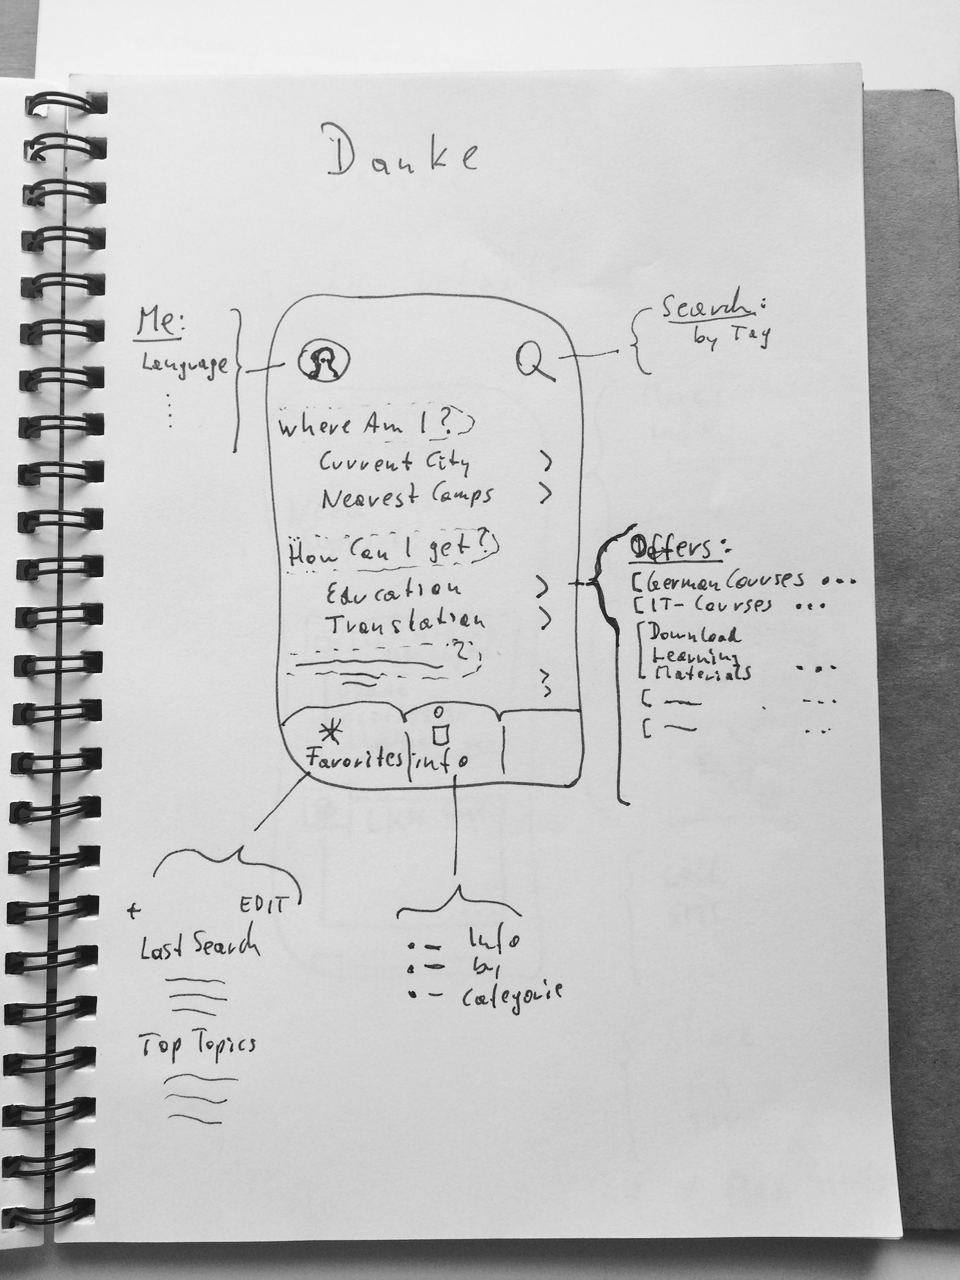 Danke
Me:
Language
Search:
by Tag
Where Am I?
Current City
Nearest Camps
How Can I get?
Education
Translation
?
Favorites
info
Offers:
German Courses ...
IT-Courses ...
Download
Learning
Materials ...
+ EDIT
Last Search
Top Topics
Info
by
Categorie